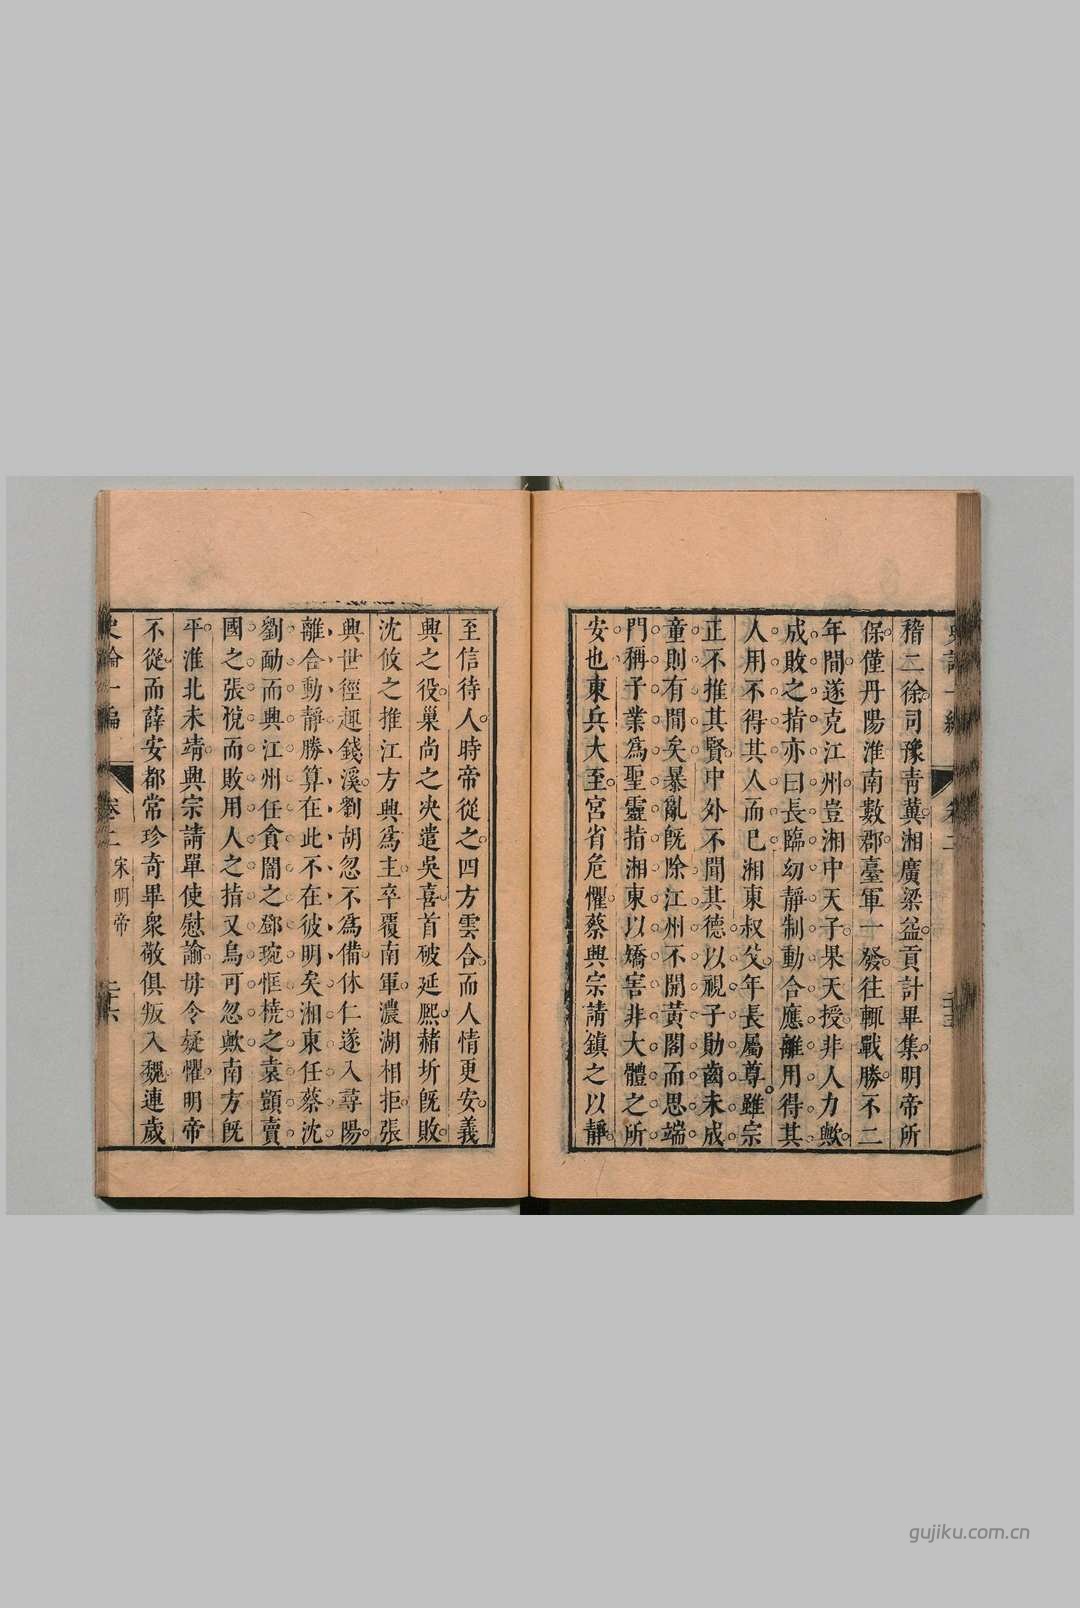 稽二徐司豫青冀湘廣梁益貢計畢集明帝所
保僅丹陽淮南數郡臺軍一發往輒戰勝不二
年間遂克江州豈湘中天子果天授非人力歟
成敗之指亦曰長臨幼靜制動合應離用得其
人用不得其人而已湘東叔父年長屬尊雖宗
正不推其賢中外不聞其德以視子勛齒未成
童則有間矣暴亂旣除江州不開黃閣而思端
門稱子業爲聖靈指湘東以矯害非大體之所
安也東兵大至宮省危懼蔡興宗請鎮之以靜
至信待人時帝從之四方雲合而人情更安義
興之役巢尚之決遣吳喜首破延熙赭圻旣敗
沈攸之推江方興爲主卒覆南軍濃湖相拒張
興世徑趣錢溪劉胡忽不爲備休仁遂入尋陽
離合動靜勝算在此不在彼明矣湘東任蔡沈
劉勔而興江州任貪闇之鄧琬恇橈之袁顗賣
國之張悅而敗用人之指又烏可忽歟南方旣
平淮北未靖興宗請單使慰諭毋令疑懼明帝
不從而薛安都常珍奇畢衆敬俱叛入魏連歲
史論一編 卷二 宋明帝 二十六
gujiku.com.cn